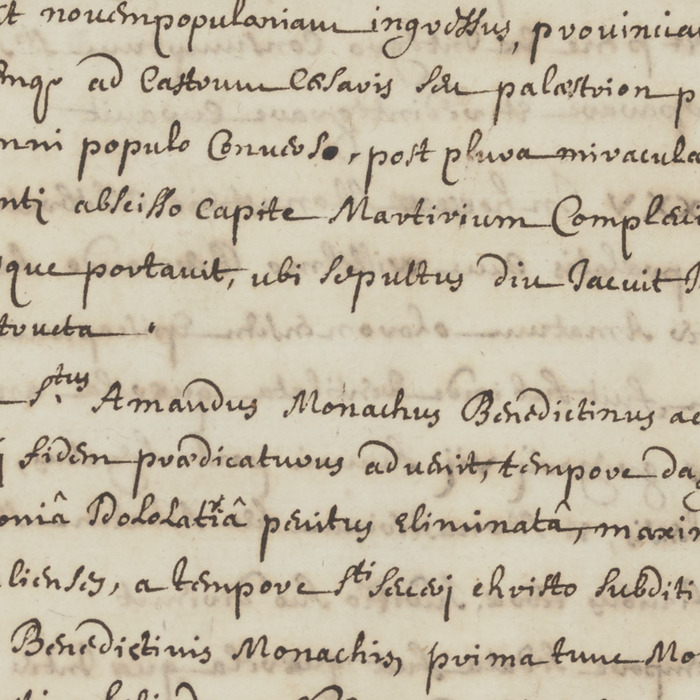 et novempopulaniam ingressus, provincia
ad Castrum Cæsaris seu palæstrion p
mni populo Converso, post plura miracula
abscisso capite Martirium Complevi
que portavit, ubi sepultus diu Iacuit
S.tus Amandus Monachus Benedictinus a
fidem prædicaturus advenit, tempore dag
oniâ Idololatriâ penitus eliminatâ, maxim
lienses, a tempore S.ti Severj christo subditi
Benedictinis Monachis, prima tunc Mo